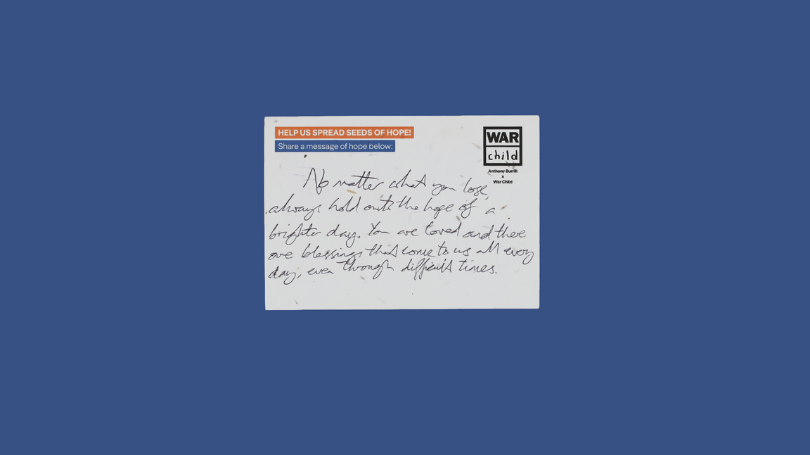 HELP US SPREAD SEEDS OF HOPE!
Share a message of hope below:
WAR
child
Anthony Burrill
x
War Child
No matter what you lose
always hold onto the hope of a
brighter day. You are loved and there
are blessings that come to us all every
day, even through difficult times.